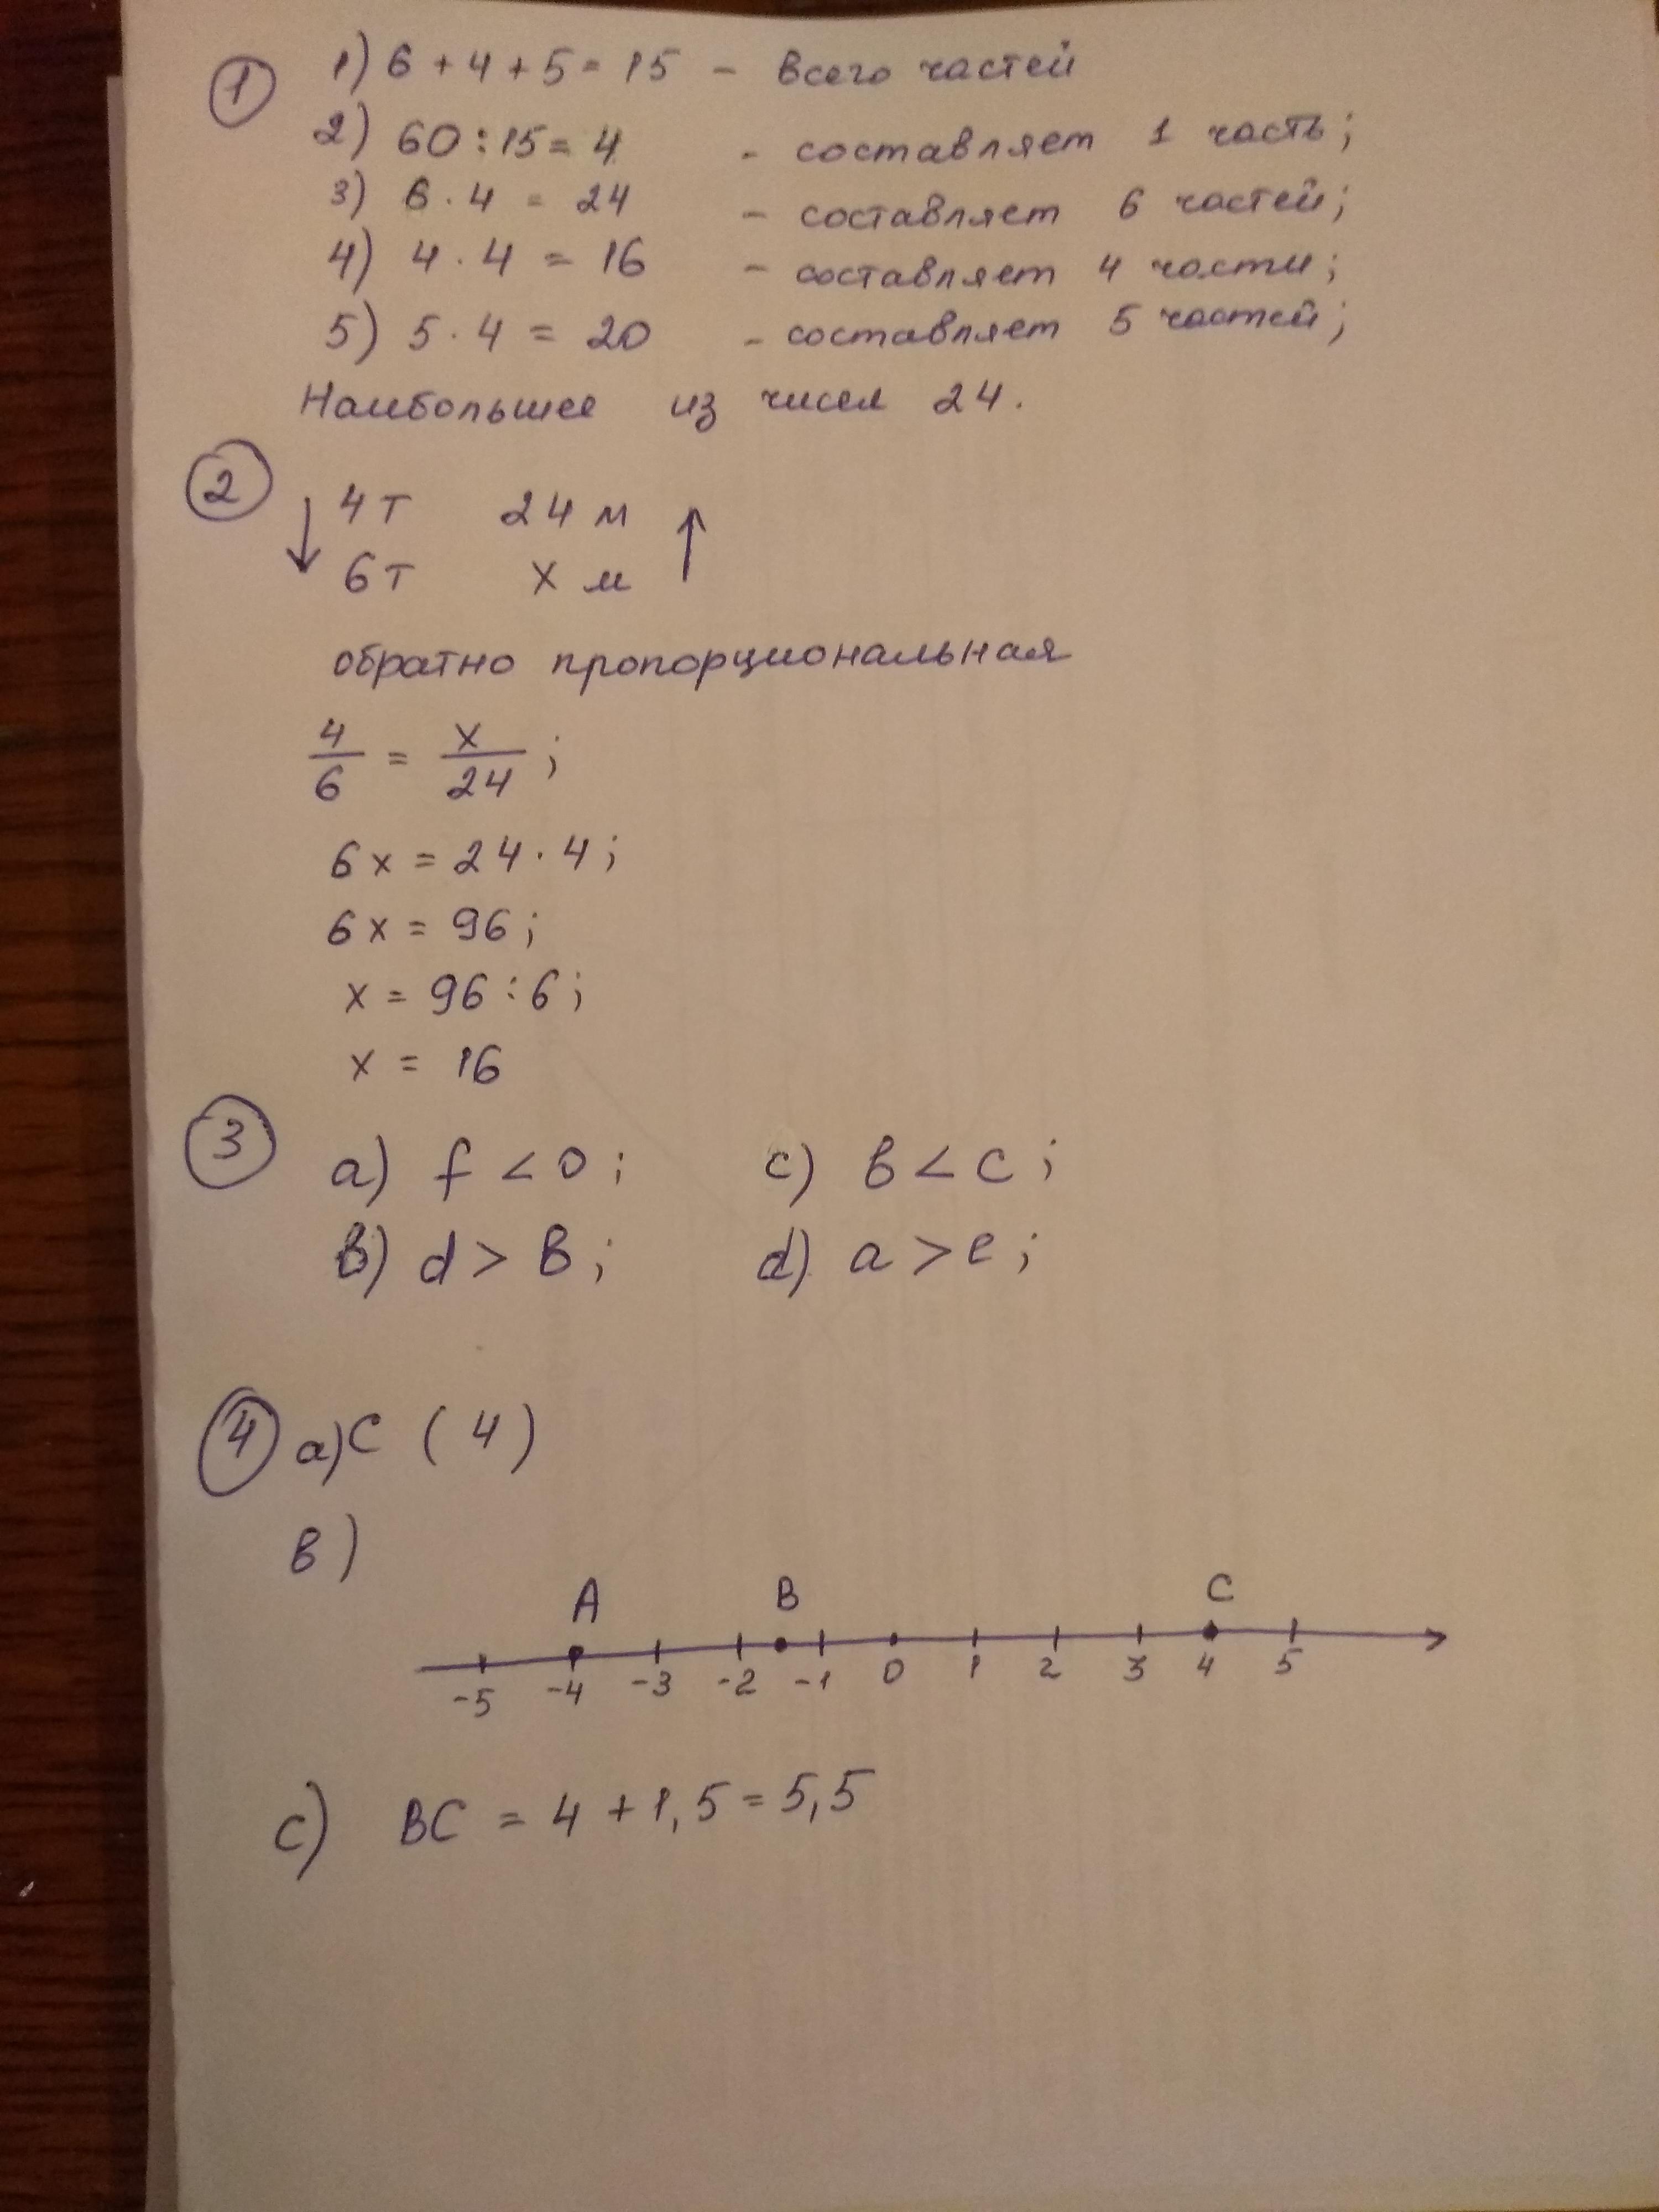 1
1) 6 + 4 + 5 = 15 - всего частей
2) 60 : 15 = 4 - составляет 1 часть;
3) 6 · 4 = 24 - составляет 6 частей;
4) 4 · 4 = 16 - составляет 4 части;
5) 5 · 4 = 20 - составляет 5 частей;
Наибольшее из чисел 24.
2
↓ 4 т 24 м ↑
6 т x м
обратно пропорциональная
4/6 = x/24;
6x = 24 · 4;
6x = 96;
x = 96 : 6;
x = 16
3
a) f < 0; c) b < c;
b) d > b; d) a > e;
4 a) C (4)
b)
A B C
-5 -4 -3 -2 -1 0 1 2 3 4 5
c) BC = 4 + 1,5 = 5,5